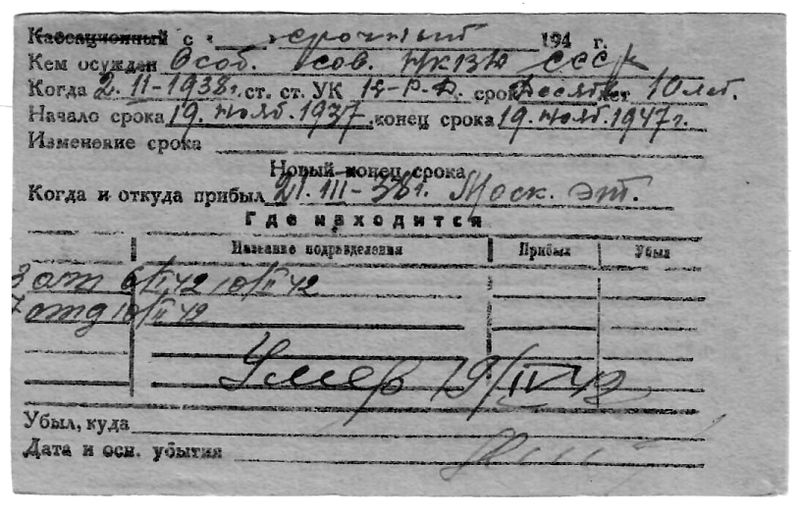 Кассационный с " " срочный 194 г.
Кем осужден Особ. сов. НКВД СССР
Когда 2.II-1938г. ст. ст. УК К-Р-Д. срок Десять лет 10 лет.
Начало срока 19. Нояб. 1937. конец срока 19. Нояб. 1947г.
Изменение срока
Новый конец срока
Когда и откуда прибыл 21.III-38г. Моск. эт.
Где находится
Название подразделения Прибыл Убыл
6/II 42 10/II 42
7 отд 10/II 42
Умер 19/IV-42
Убыл, куда
Дата и осн. убытия